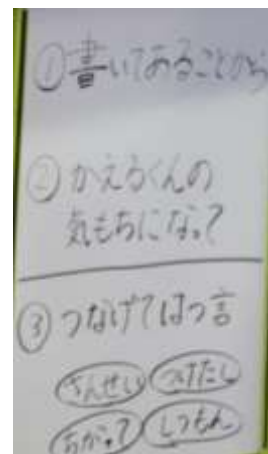 ①書いてあることから
②かえるくんの
気もちになって
③つなげてはつ言
さんせい つけたし
ちがって しつもん